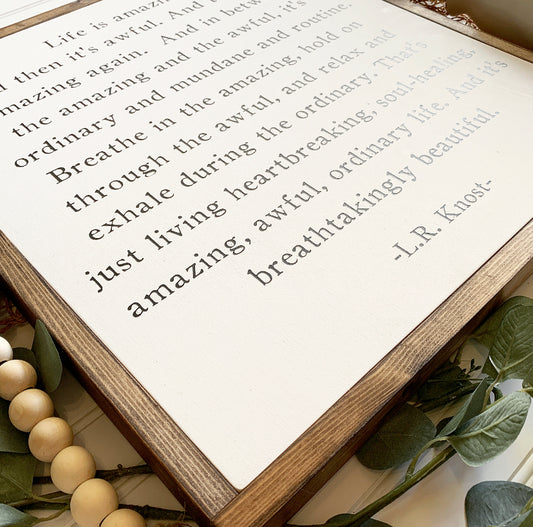 Life is amazing. And
then it's awful. And
amazing again. And in betw
the amazing and the awful, it's
ordinary and mundane and routine.
Breathe in the amazing, hold on
through the awful, and relax and
exhale during the ordinary. That's
just living heartbreaking, soul-healing,
amazing, awful, ordinary life. And it's
breathtakingly beautiful.
-L.R. Knost-